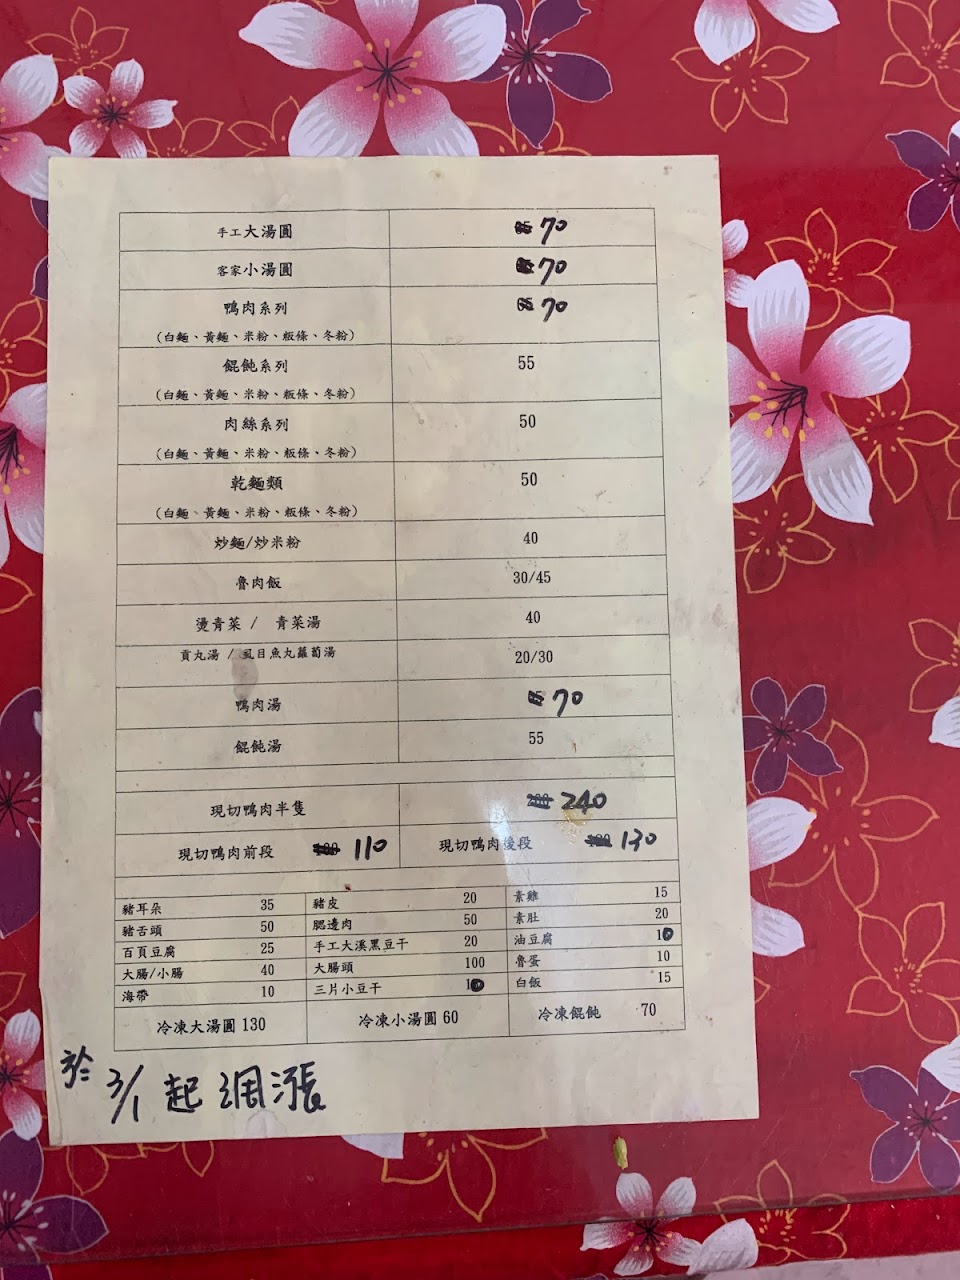 手工大湯圓 70
客家小湯圓 70
鴨肉系列 70
(白麵、黃麵、米粉、粄條、冬粉)
餛飩系列 55
(白麵、黃麵、米粉、粄條、冬粉)
肉絲系列 50
(白麵、黃麵、米粉、粄條、冬粉)
乾麵類 50
(白麵、黃麵、米粉、粄條、冬粉)
炒麵/炒米粉 40
魯肉飯 30/45
燙青菜 / 青菜湯 40
貢丸湯 / 虱目魚丸蘿蔔湯 20/30
鴨肉湯 70
餛飩湯 55
現切鴨肉半隻 240
現切鴨肉前段 110 現切鴨肉後段 130
豬耳朵 35 豬皮 20 素雞 15
豬舌頭 50 腮邊肉 50 素肚 20
百頁豆腐 25 手工大溪黑豆干 20 油豆腐 10
大腸/小腸 40 大腸頭 100 魯蛋 10
海帶 10 三片小豆干 10 白飯 15
冷凍大湯圓 130 冷凍小湯圓 60 冷凍餛飩 70
於 3/1 起調漲